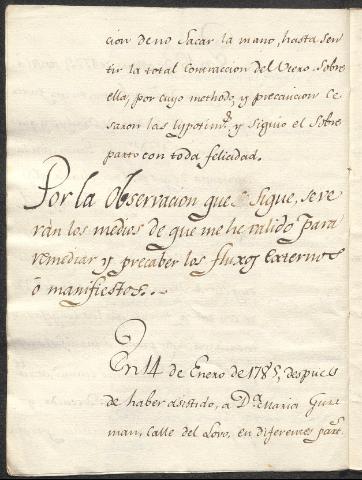 cion de no sacar la mano, hasta sen
tir la total contraccion del Utero sobre
ella, por cuyo methodo, y precaucion ce
saron las lypotim.s y siguio el sobre
parto con toda felicidad.
Por la Observacion que se sigue, se ve
rán los medios de que me he valido para
remediar y precaber los fluxos externos
ó manifiestos.
En 14 de Enero de 1785, despues
de haber asistido, a D.a Maria Guz
man, Calle del Lovo, en diferentes part.s